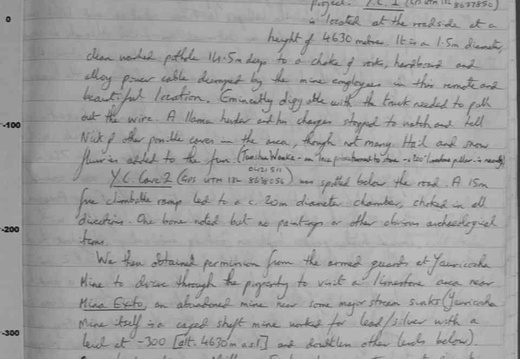 project. Y.C. 1 (GPS UTM 18L
is located at the roadside at a
height of 4630 metres. It is a 1.5m diameter,
clean washed pothole 14.5m deep to a choke of rocks, hardboard and
alloy power cable dumped by the mine employees in this remote and
beautiful location. Eminently diggable with the truck needed to pull
out the wire. A llama herder and his charges stopped to watch and tell
Nick of other possible caves in the area, though not many. Hail and snow
flurries added to the fun.
Y.C. Cave 2 (GPS UTM 18L was spotted below the road. A 15m
free climbable ramp led to a c. 20m diameter chamber, choked in all
directions. One bone noted but no paintings or other obvious archaeological
items.
We then obtained permission from the armed guards at Yauricocha
Mine to drive through the property to visit a limestone area near
Mina Exito, an abandoned mine near some major stream sinks (Yauricocha
Mine itself is a caged shaft mine worked for lead/silver with a
level at -300 [alt. 4630m asl] and doubtless other levels below).
0
-100
-200
-300